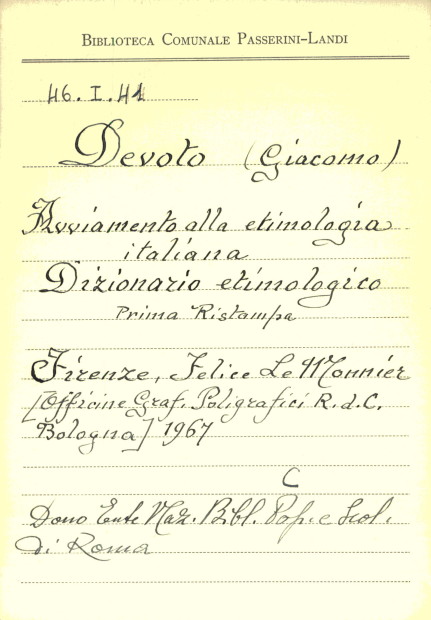 BIBLIOTECA COMUNALE PASSERINI-LANDI
46.I.41
Devoto (Giacomo)
Avviamento alla etimologia
italiana
Dizionario etimologico
Prima Ristampa
Firenze, Felice Le Monnier
[Officine Graf. Poligrafici R.d.C.
Bologna] 1967
C
Dono Ente Naz. Bibl. Pop. e Scol.
di Roma